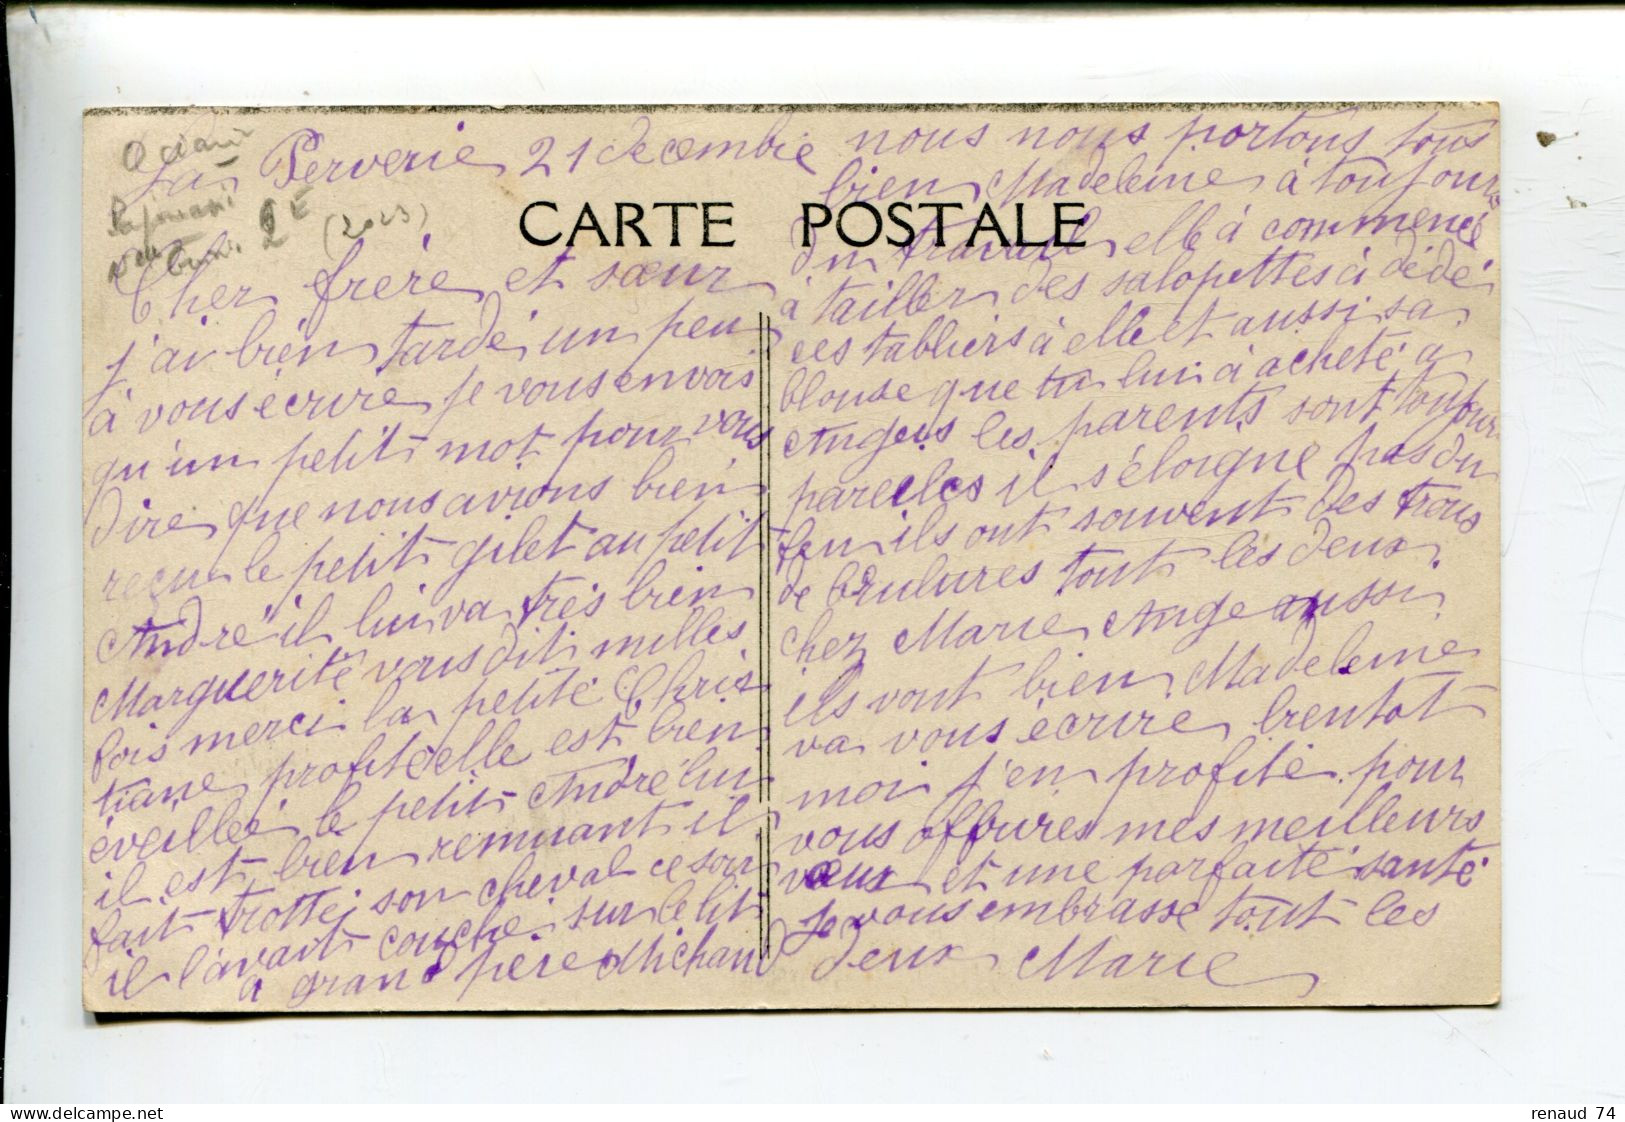 La Perverie 21 decembre
CARTE POSTALE
Cher frère et sœur
j'ai bien tardé un peu
à vous ecrire je vous envois
qu'un petit mot pour vous
dire que nous avions bien
reçu le petit gilet au petit
André il lui va très bien
Marguerite vous dit milles
fois merci la petite Chris
tiane profite elle est bien
éveillée le petit André lui
il est bien remuant il
fait trotté son cheval ce soir
il l'avait couché sur le lit
a grand père Michaud
nous nous portons tous
bien Madeleine à toujours
du travail elle à commencé
à tailler des salopettes à dédé
ces tabliers à elle et aussi sa
blouse que tu lui à acheté a
Angers les parents sont toujours
pareilles il s'éloigne pas du
feu ils ont souvent des trous
de brulures tout les deux
chez Marie Ange aussi
ils vont bien Madeleine
va vous écrire bientot
moi j'en profite pour
vous offrires mes meilleurs
vœux et une parfaite santé
je vous embrasse tout les
deux Marie
2€ (2023)
renaud 74